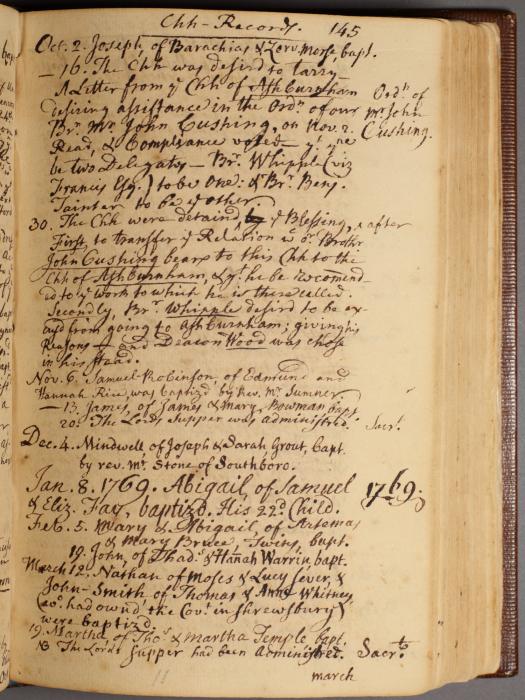 Chh-Records. 145
Oct. 2. Joseph, of Barachias & Zerv. Morse, bapt.
— 16. The Chh was desird to tarry —
A Letter from ye Chh of Ashburnham
desiring assistance in the Ordn of our
Br. Mr. John Cushing, on Nov. 2.
Ordn of
Mr John
Cushing.
Read, & Compliance voted — yt yre
be two Delegates — Br. Whipple (viz
Francis Esq.) to be One: & Br. Benj.
Tainter to be ye other.
30. The Chh were detaind, ye Blessing, after
First to transfer ye Relation wc or Brothr
John Cushing bears to this Chh to the
Chh of Ashburnham, & yt he be recomend-
ed to ye work to which he is there called.
Secondly, Br. Whipple desird to be ex-
cusd from going to Ashburnham; giving his
Reasons — and Deacon Wood was chose
in his stead.
Nov. 6. Samuel Robinson, of Edmund and
Hannah Rice, was baptizd by Rev. Mr Sumner.
— 13. James, of James & Mary Bowman, bapt
20. The Lords Supper was administred. Sacr.
Dec. 4. Mindwell of Joseph & Sarah Grout, bapt.
by rev. Mr. Stone of Southboro.
Jan. 8. 1769. Abigail, of Samuel 1769.
& Eliz. Fay, baptizd. His 22d Child.
Feb. 5. Mary & Abigail, of Artemas
& Mary Bruce, Twins, bapt.
19. John, of Thadd & Hanah Warrin, bapt.
March 12. Nathan of Moses & Lucy Sever, &
John-Smith of Thomas & Anna Whitney
(wo had ownd the Covt in Shrewsbury)
were baptizd.
19. Martha of Thos & Martha Temple bapt.
The Lords Supper had been administred. Sacrt
march